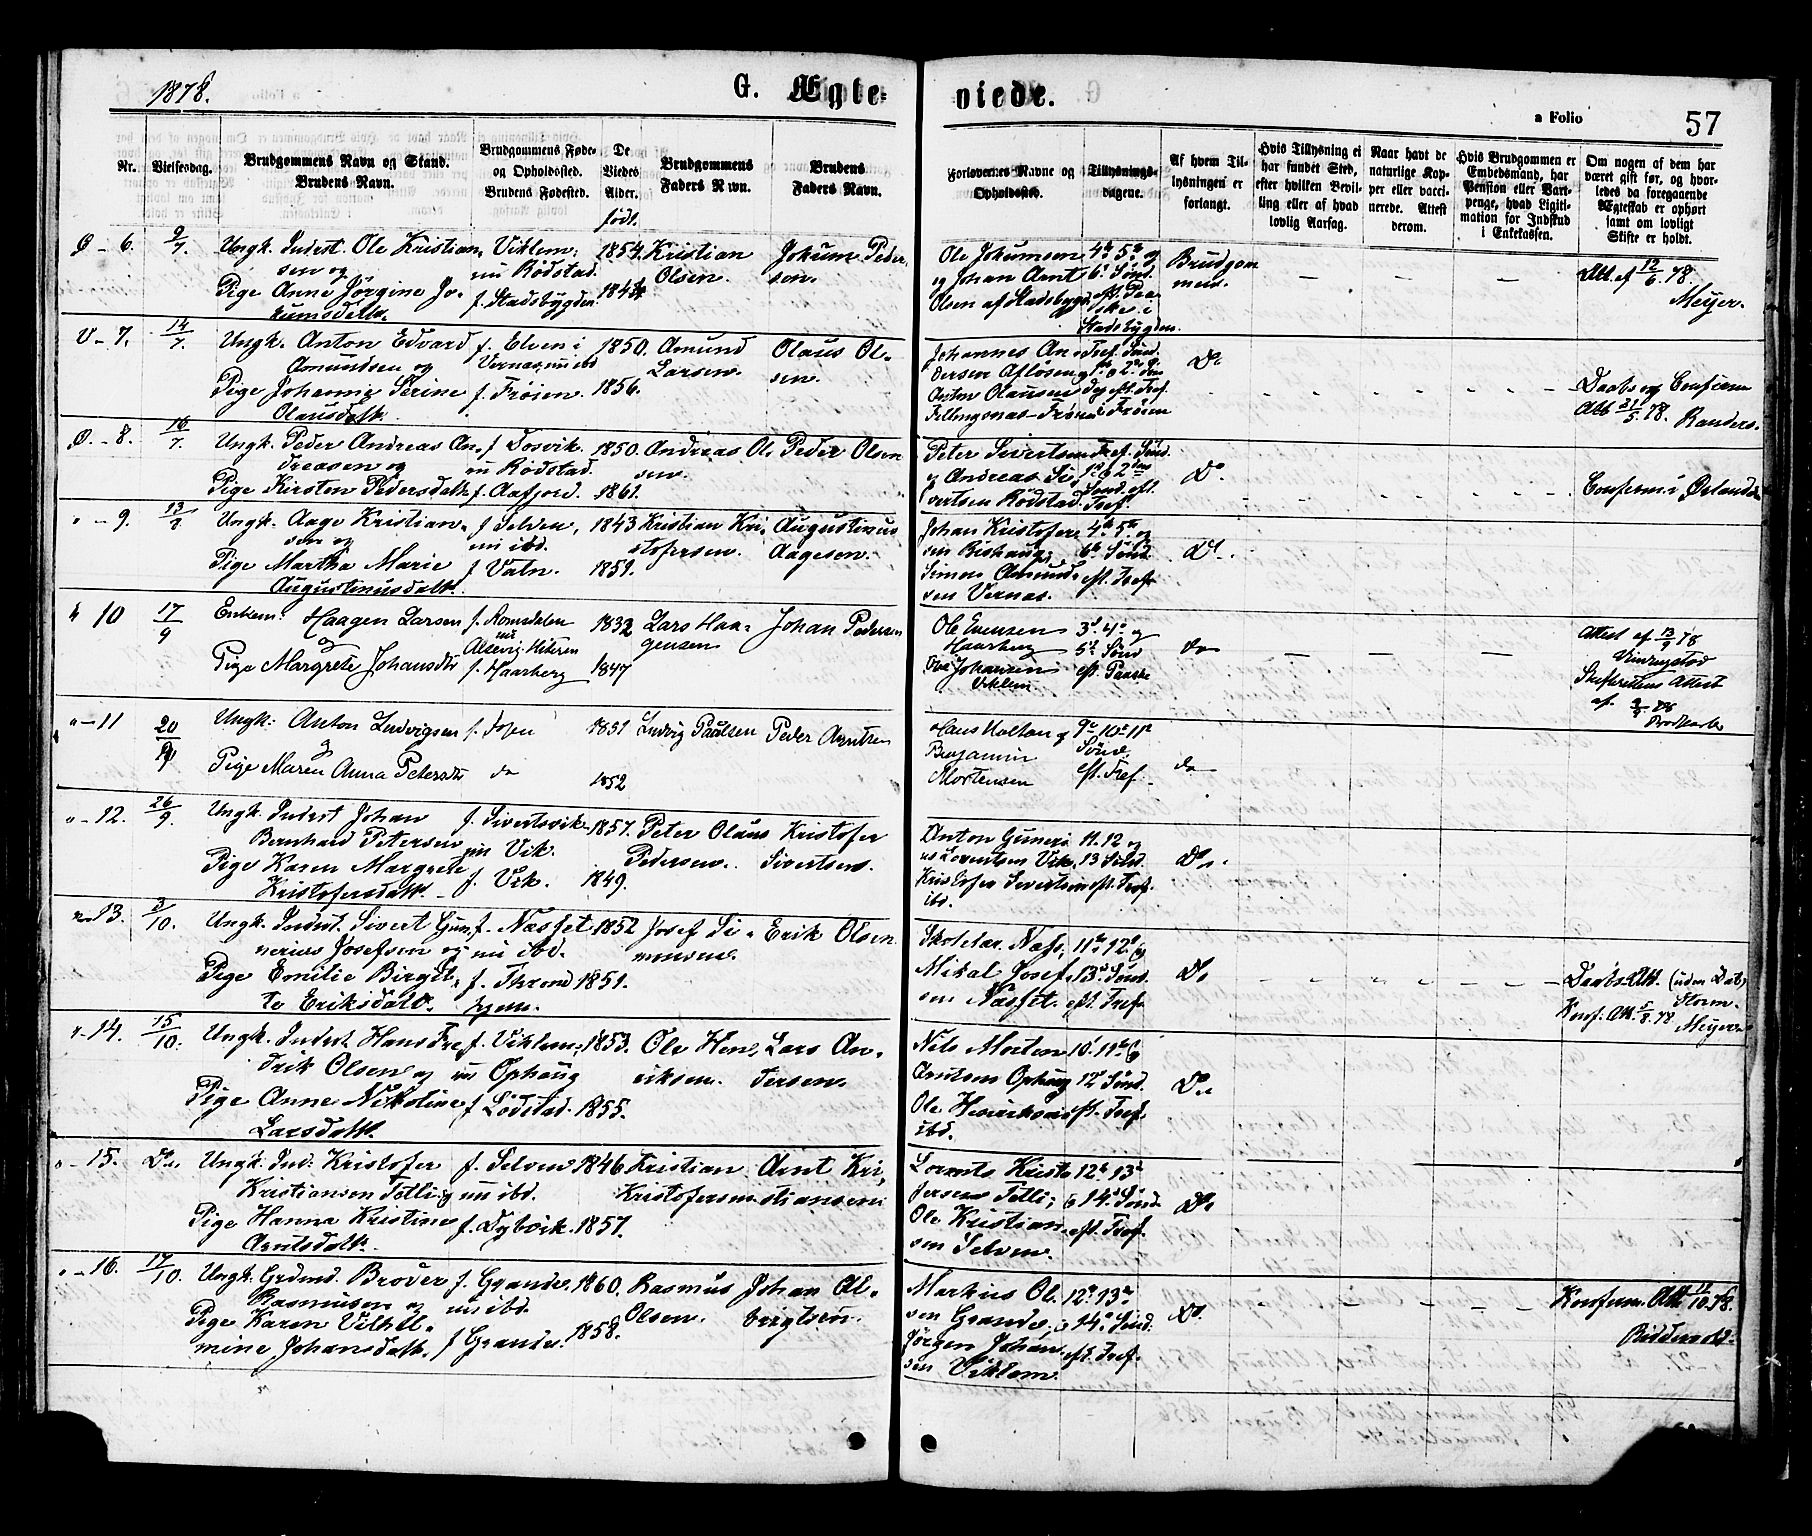 1878.
G. Ægte-
viede.
a Folio 57
Nr.
Vielsesdag.
Brudgommens Navn og Stand.
Brudens Navn.
Brudgommens Føde-
og Opholdssted.
Brudens Fødested.
De
Viedes
Alder.
født.
Brudgommens
Faders Navn.
Brudens
Faders Navn.
Forlovernes Navne og
Opholdssted.
Tillysnings-
dagene.
Af hvem Til-
lysningen er
forlangt.
Hvis Tillysning ei
har fundet Sted,
efter hvilken Bevil-
ling eller af hvad
lovlig Aarsag.
Naar havt de
naturlige Kop-
per eller vacci-
nerede. Attest
derom.
Hvis Brudgommen er
Embedsmand, har
Pension eller Vart-
penge, hvad Ligiti-
mation for Indskud
i Enkekassen.
Om nogen af dem har
været gift før, og hvor-
ledes da foregaaende
Ægteskab er ophørt
samt om lovligt
Skifte er holdt.
Ø - 6. 9/7 Ungk. Inderst. Ole Kristian-
sen og
Pige Anne Jørgine Jo-
kumsdatt.
Viklem;
nu Rødstad.
f. Stadsbygden
1854.
Kristian
Olsen.
Jokum Peder-
sen.
Ole Jokumsen
og Johan Arnt
Olsen af Stadsbygd
4de 5te og
6te Sønd.
eft. Paa-
ske i
Stadsbygden.
Brudgom
men.
Att. af 12/6. 78.
Meyer.
V - 7. 14/7. Ungk. Anton Edvard
Amundsen og
Pige Johanna Serine
Olausdatt.
f. Elven i
Vernæs, nu ibd
f. Frøien.
1850.
1856.
Amund
Larsen.
Olaus Ol-
sen.
Johannes An-
dersen
Anton Olausen
Do
Daabs og Confirm
Att 21/5. 78. Randers.
Ø. - 8. 16/7 Ungk. Peder Andreas An-
dreasen og
Pige Kirsten Pedersdatt.
nu Rødstad.
f. Aafjord.
1850.
1861.
Andreas Ol-
sen.
Peder Olsen
Peter Sivertsen
og Andreas Si-
vertsen Rødstad.
Do.
Confirm i Ørlandet
" - 9. Ungk. Aage Kristian-
sen og
Pige Martha Marie
Augustinusdatt.
f. Selven,
nu ibd.
f. Valn.
1843
1851.
Kristian Kri-
stofersen.
Augustinus
Aagesen.
Johan Kristofer-
sen
Simon Amund-
sen Vernæs.
4de 5te og
6te Sønd.
eft. Tref.
Do.
" 10 17/9 Enkem. Haagen Larsen
og
Pige Margrete Johansdtr
f. Romsdalen
nu
Hiteren
f. Haarberg
1832
1847
Lars Haa-
gensen
Johan Pedersen
Ole Evensen
Haarberg
Johansen
Viklem
3d 4de og
5te Sønd
eft. Paaske
do
Attest af 13/9 78
Skifterettens Attest
af
" - 11 20/9 Ungk: Anton Ludvigsen
og
Pige Maren Anna Petersdtr
do
1851
1852
Ludvig Paulsen
Peder Arntsen
Benjamin
Mortensen
9de 10de 11te
Sønd.
eft. Tref.
do
" - 12. 26/9. Ungk. Inderst Johan
Bernhard Petersen
Pige Karen Margrete
Kristofersdatt.
f. Sivertsvik
nu Vik.
f. Vik.
1857.
1849.
Peter Olaus
Pedersen.
Kristofer
Sivertsen.
Anton Guneri-
us Lorentsen Vik.
Kristofer Sivertsen
ibd.
11. 12 og
13 Sønd.
eft. Tref.
Do.
" 13. 3/10. Ungk. Inderst. Sivert Gun-
nerius Josefsen og
Pige Emilie Birgit-
te Eriksdatt.
f. Næsset
nu ibd.
f. Thrond
hjem.
1852
1851.
Josef Si-
monsen.
Erik Olsen
Skolelær. Næss,
Mikal Josef-
sen Næsset.
11te 12te og
13de Sønd.
eft. Tref.
Do
Daabs-Att. (uden Dato)
Storm.
Konf. Att. 5/8. 78 Meyer.
" - 14. 15/10. Ungk. Inderst Hans Fre-
drik Olsen og
Pige Anne Nikoline
Larsdatt.
f. Viklem,
nu Ophaug
f. Lødstad.
1853.
1855.
Ole Hen-
riksen.
Lars An-
dersen.
Nils Morten
Arntsen Ophaug
Ole Henriksen
ibd.
10de 11te og
12te Sønd.
eft. Tref.
Do.
" - 15. Do. Ungk. Ind. Kristofer
Kristiansen Tølli og
Pige Hanna Kristine
Arntsdatt.
f. Selven
nu ibd.
f. Dybvik.
1846
1857.
Kristian
Kristofersen
Arnt Kri-
stiansen
Lorents Kristo
fersen Tølli,
Ole Kristian-
sen Selven.
12te 13de
og 14de Sønd.
eft. Tref.
Do
" - 16. 17/10. Ungk. Grdmd. Broder
Rasmusen og
Pige Karen Vilhel-
mine Johansdatt.
f. Grande.
nu ibd.
f. Grande.
1860.
1858.
Rasmus
Olsen.
Johan Al-
brigtsen.
Markus Ol-
sen Grande,
Jørgen Johan-
sen Viklem.
12te 13de
og 14de Sønd.
eft. Tref.
Do.
Konfirm. Att.